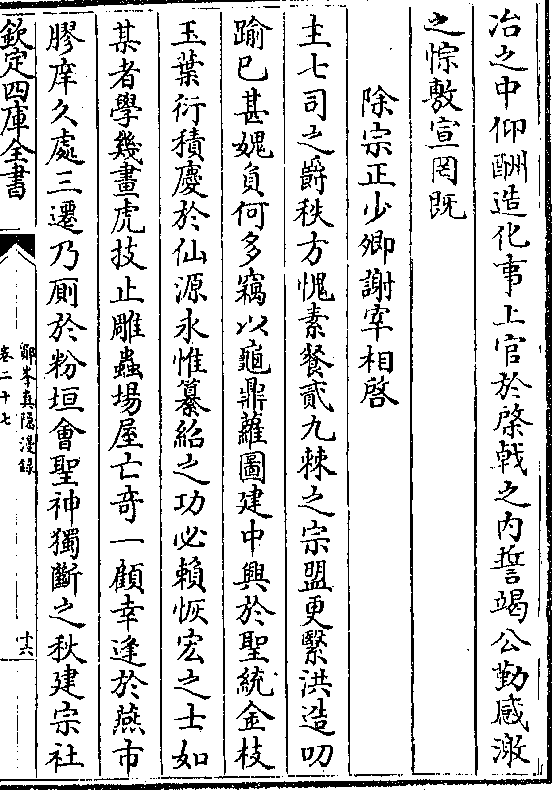 冶之中仰酬造化事上官於棨戟之内誓竭公勤感激
之悰敷宣罔既
除宗正少卿謝宰相啓
主七司之爵秩方愧素餐貳九棘之宗盟更繄洪造叨
踰已甚媿負何多竊以龜鼎蘿圖建中興於聖統金枝
玉葉衍積慶於仙源永惟纂紹之功必賴恢宏之士如
某者學幾畫虎技止雕蟲場屋亡奇一顧幸逢於燕市
膠庠久處三遷乃厠於粉垣會聖神獨斷之秋建宗社
欽定四庫全書
鄮峯真隠漫録
卷二十七
十六